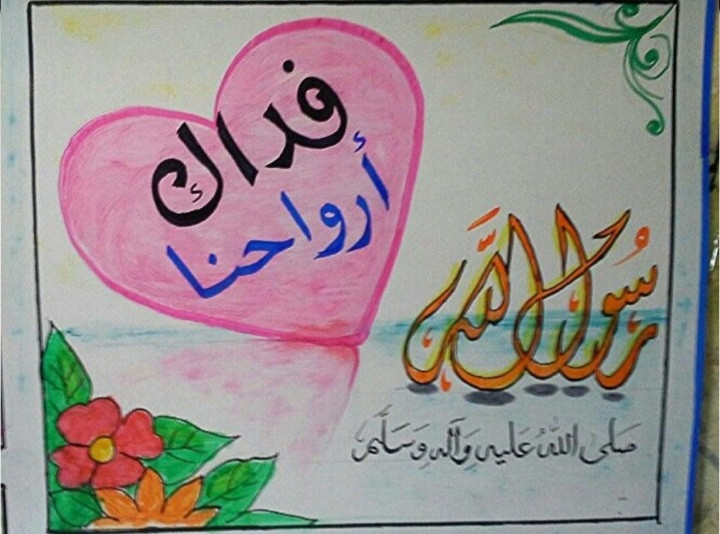 فداك
أرواحنا
رَسُولُ اللَّه
صَلى اللهُ عَليهِ وَآلهِ وَسَلَّم